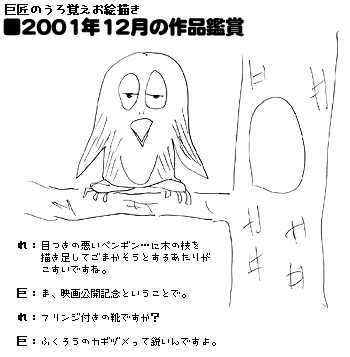 巨匠のうろ覚えお絵描き
■2001年12月の作品鑑賞
れ：目つきの悪いペンギン…に木の枝を
描き足してごまかそうとするあたりが
こすいですね。
巨：ま、映画公開記念ということで。
れ：フリンジ付きの靴ですか?
巨：ふくろうのカギヅメって鋭いんですよ。